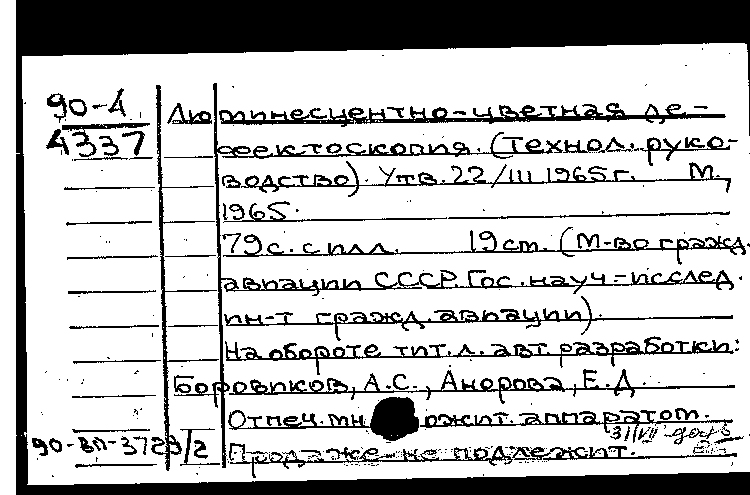 90-4
4337
Люминесцентно-цветная де-
фектоскопия. (Технол. руко-
водство). Утв. 22/III 1965г. М.,
1965.
79с. с илл. 19см. (М-во гражд.
авиации СССР. Гос. науч.-исслед.
ин-т гражд. авиации).
На обороте тит. л. авт. разработки:
Боровиков, А.С.,
Е.Д.
Отпеч. мн ожит. аппаратом.
90-ВП-3729/2 Продаже не подлежит.